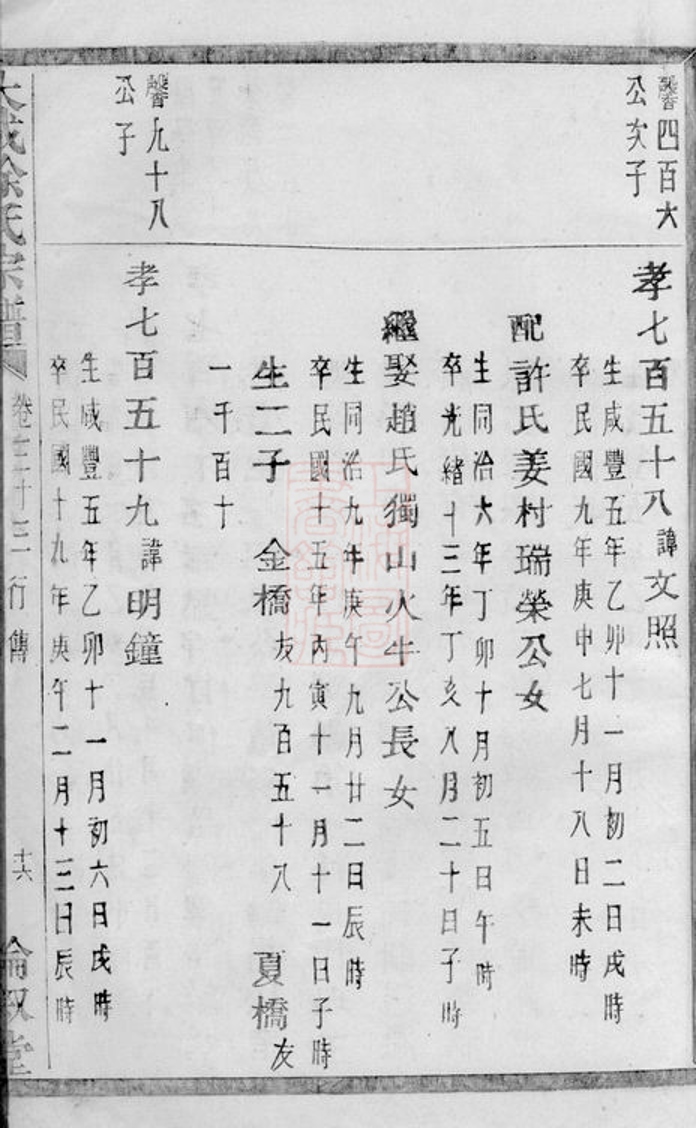 馨四百六
公次子
孝七百五十八諱文照
生咸豐五年乙卯十一月初二日戌時
卒民國九年庚申七月十八日未時
配許氏姜村瑞榮公女
生同治六年丁卯十月初五日午時
卒光緒十三年丁亥八月二十日子時
繼娶趙氏獨山火牛公長女
生同治九年庚午九月廿二日辰時
卒民國十五年丙寅十一月十一日子時
生二子 金橋友九百五十八 夏橋友
一千百十
馨九十八
公子
孝七百五十九諱明鐘
生咸豐五年乙卯十一月初六日戌時
卒民國十九年庚午二月十三日辰時
徐氏宗譜 卷三十三 行傳 十六 倫敘堂